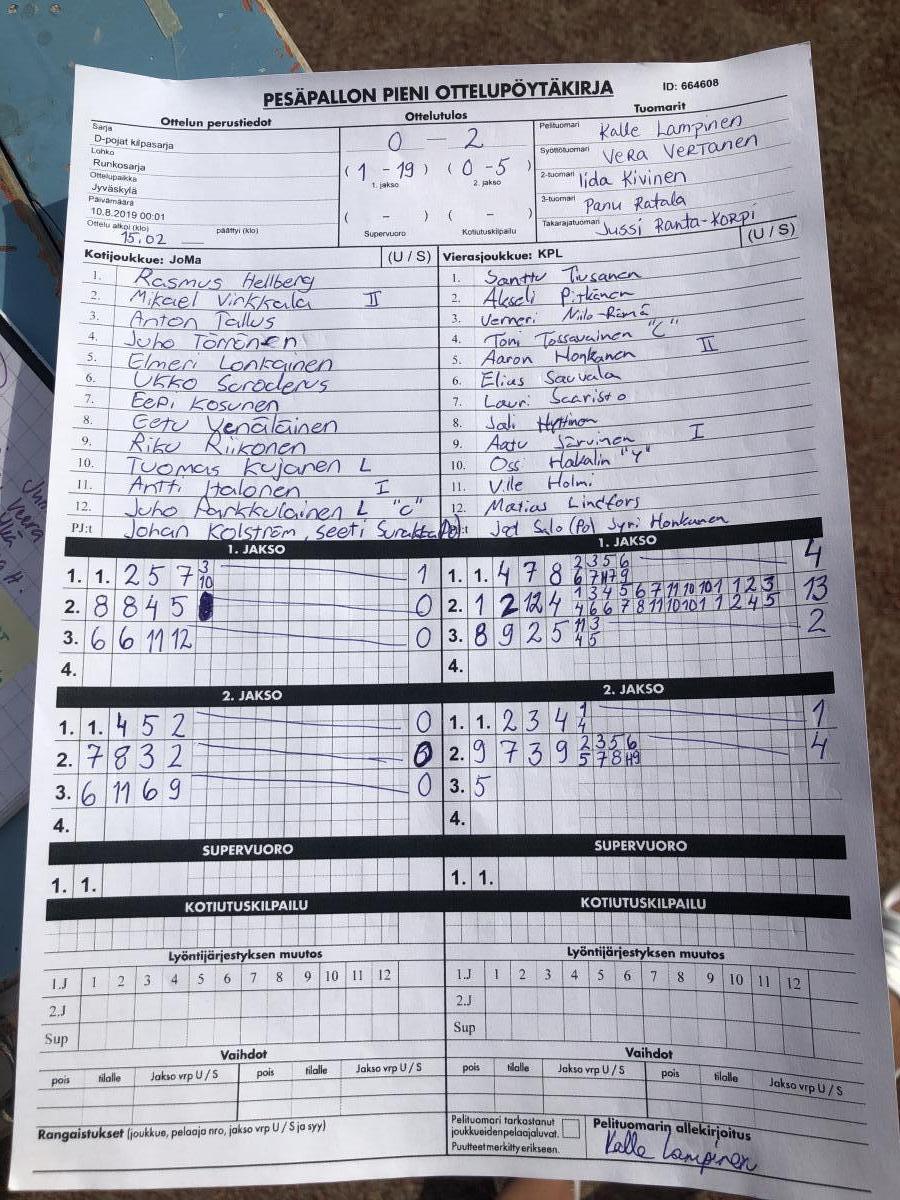 PESÄPALLON PIENI OTTELUPÖYTÄKIRJA
ID: 664608
Ottelun perustiedot
Sarja
D-pojat kilpasarja
Lohko
Runkosarja
Ottelupaikka
Jyväskylä
Päivämäärä
10.8.2019 00:01
Ottelu alkoi (klo) päättyi (klo)
15.02
Ottelutulos
0 — 2
(1 - 19) (0 - 5)
1. jakso 2. jakso
( - ) ( - )
Supervuoro Kotiutuskilpailu
Tuomarit
Pelituomari Kalle Lampinen
Syöttötuomari VERA VERTANEN
2-tuomari Iida Kivinen
3-tuomari Panu Ratala
Takarajatuomari Jussi Ranta-Korpi
Kotijoukkue: JoMa (U / S)
1. Rasmus Hellberg
2. Mikael Virkkala II
3. Anton Tallus
4. Juho Törrönen
5. Elmeri Lonkainen
6. Ukko
7. Eepi Kosunen
8. Eetu Venäläinen
9. Riku Riikonen
10. Tuomas Kujanen L
11. Antti Italonen I
12. Juho Parkkulainen L "C"
PJ:t Johan Kolström, Seeti
Vierasjoukkue: KPL (U / S)
1. Santtu Tiusanen
2. Akseli Pitkänen
3. Verneri Niilo-Rämä
4. Toni Tossavainen "C"
5. Aaron Honkanen II
6. Elias Sauvala
7. Lauri Saaristo
8. Jali Hyttinen
9. Aatu Järvinen I
10. Hakalin "Y"
11. Ville Holmi
12. Matias Lindfors
Salo (PJ) Jyri Honkanen
1. JAKSO
1. 1. 2 5 7 3 1
10
2. 8 8 4 5 0
3. 6 6 11 12 0
4.
1. JAKSO
1. 1. 4 7 8 2 3 5 6 4
6 7 11 9
2. 1 2 12 4 1 3 4 5 6 7 11 10 10 1 1 2 3 13
4 6 6 7 8 11 10 10 1 1 2 4 5
3. 8 9 2 5 11 3 2
4 5
4.
2. JAKSO
1. 1. 4 5 2 0
2. 7 8 3 2 0
3. 6 11 6 9 0
4.
2. JAKSO
1. 1. 2 3 4 1 1
4
2. 9 7 3 9 2 3 5 6 4
5 7 8 9
3. 5
4.
SUPERVUORO
1. 1.
SUPERVUORO
1. 1.
KOTIUTUSKILPAILU
KOTIUTUSKILPAILU
Lyöntijärjestyksen muutos
1.J 1 2 3 4 5 6 7 8 9 10 11 12
2.J
Sup
Lyöntijärjestyksen muutos
1.J 1 2 3 4 5 6 7 8 9 10 11 12
2.J
Sup
Vaihdot
pois tilalle Jakso vrp U / S pois tilalle Jakso vrp U / S
Vaihdot
pois tilalle Jakso vrp U / S pois tilalle Jakso vrp U / S
Rangaistukset (joukkue, pelaaja nro, jakso vrp U / S ja syy)
Pelituomari tarkastanut
joukkueiden pelaajaluvat.
Puutteet merkitty erikseen.
Pelituomarin allekirjoitus
Kalle Lampinen